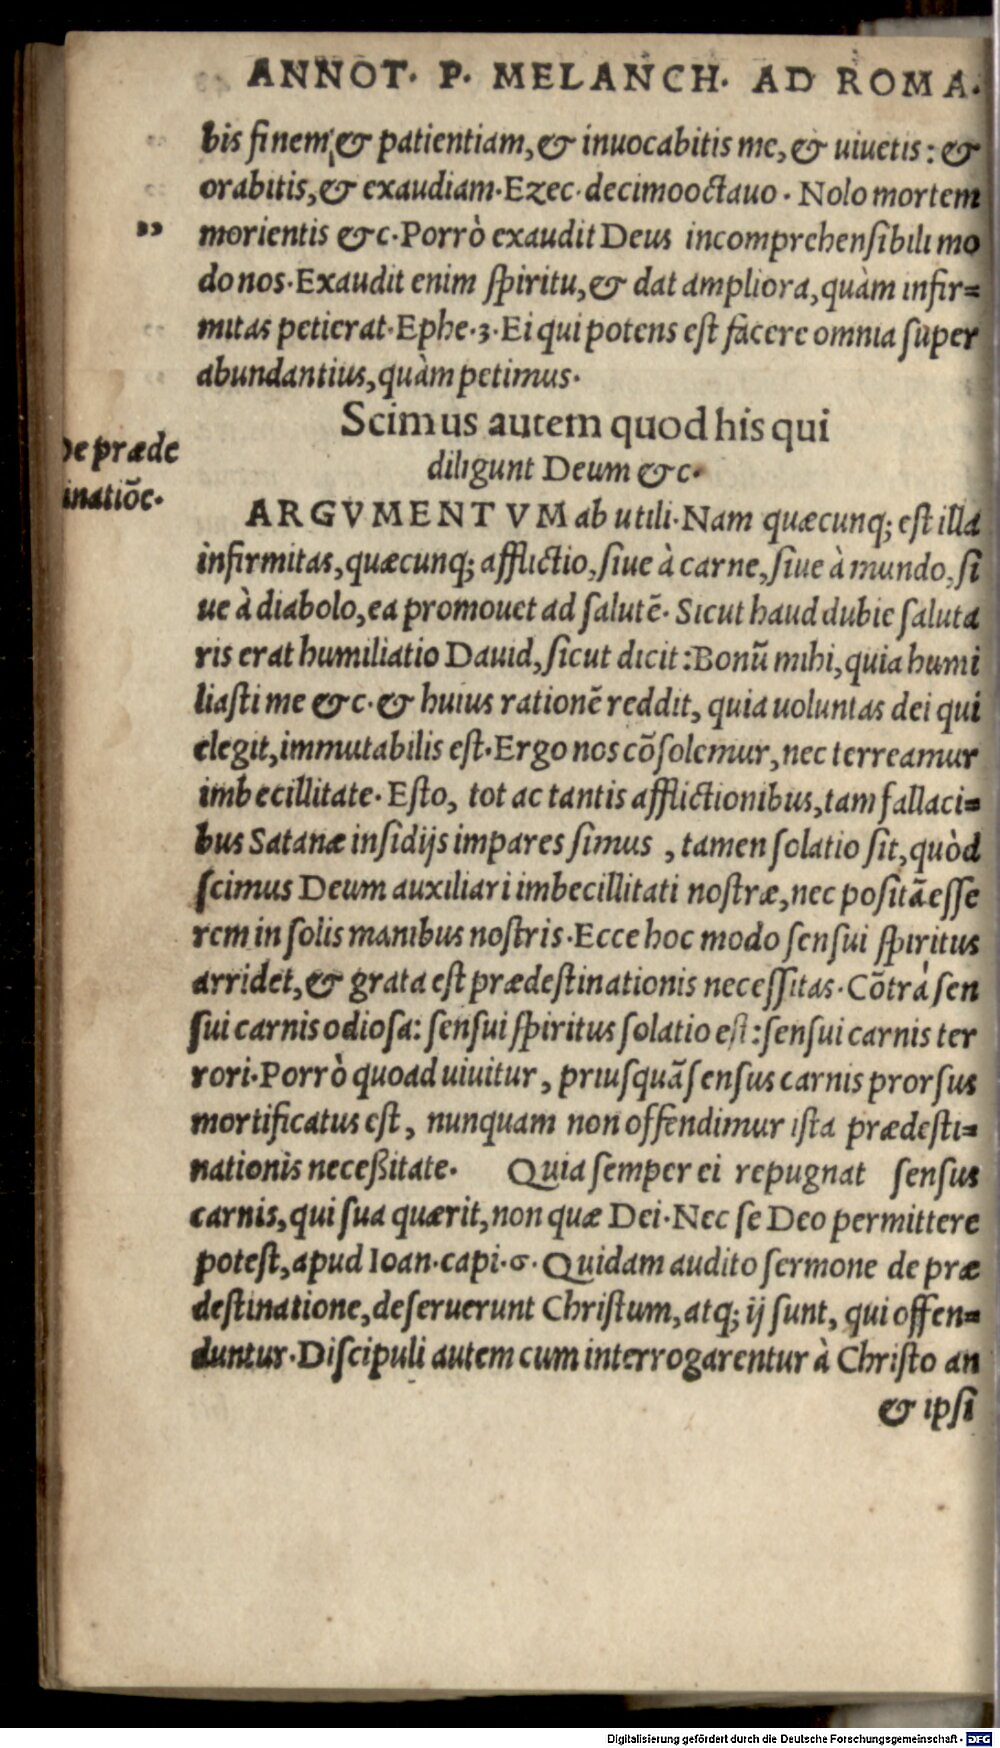 ANNOT. P. MELANCH. AD ROMA.
bis finem, & patientiam, & inuocabitis me, & uiuetis: &
orabitis, & exaudiam. Ezec. decimooctauo. Nolo mortem
„ morientis &c. Porrò exaudit Deus incomprehensibili mo
do nos. Exaudit enim spiritu, & dat ampliora, quàm infir=
mitas petierat. Ephe. 3. Ei qui potens est facere omnia super
abundantius, quàm petimus.
Scimus autem quod his qui
diligunt Deum &c.
De præde
inatiõe.
ARGVMENTVM ab utili. Nam quæcunq; est illa
infirmitas, quæcunq; afflictio, siue à carne, siue à mundo, si
ue à diabolo, ea promouet ad salutẽ. Sicut haud dubie saluta
ris erat humiliatio Dauid, sicut dicit: Bonũ mihi, quia humi
liasti me &c. & huius rationẽ reddit, quia uoluntas dei qui
elegit, immutabilis est. Ergo nos cõsolemur, nec terreamur
imbecillitate. Esto, tot ac tantis afflictionibus, tam fallaci=
bus Satanæ insidijs impares simus, tamen solatio sit, quòd
scimus Deum auxiliari imbecillitati nostræ, nec positã esse
rem in solis manibus nostris. Ecce hoc modo sensui spiritus
arridet, & grata est prædestinationis necessitas. Cõtrà sen
sui carnis odiosa: sensui spiritus solatio est: sensui carnis ter
rori. Porrò quoad uiuitur, priusquã sensus carnis prorsus
mortificatus est, nunquam non offendimur ista prædesti=
nationis neceßitate. Quia semper ei repugnat sensus
carnis, qui sua quærit, non quæ Dei. Nec se Deo permittere
potest, apud Ioan. capi. 6. Quidam audito sermone de præ
destinatione, deseruerunt Christum, atq; ij sunt, qui offen=
duntur. Discipuli autem cum interrogarentur à Christo an
& ipsi
Digitalisierung gefördert durch die Deutsche Forschungsgemeinschaft - DFG